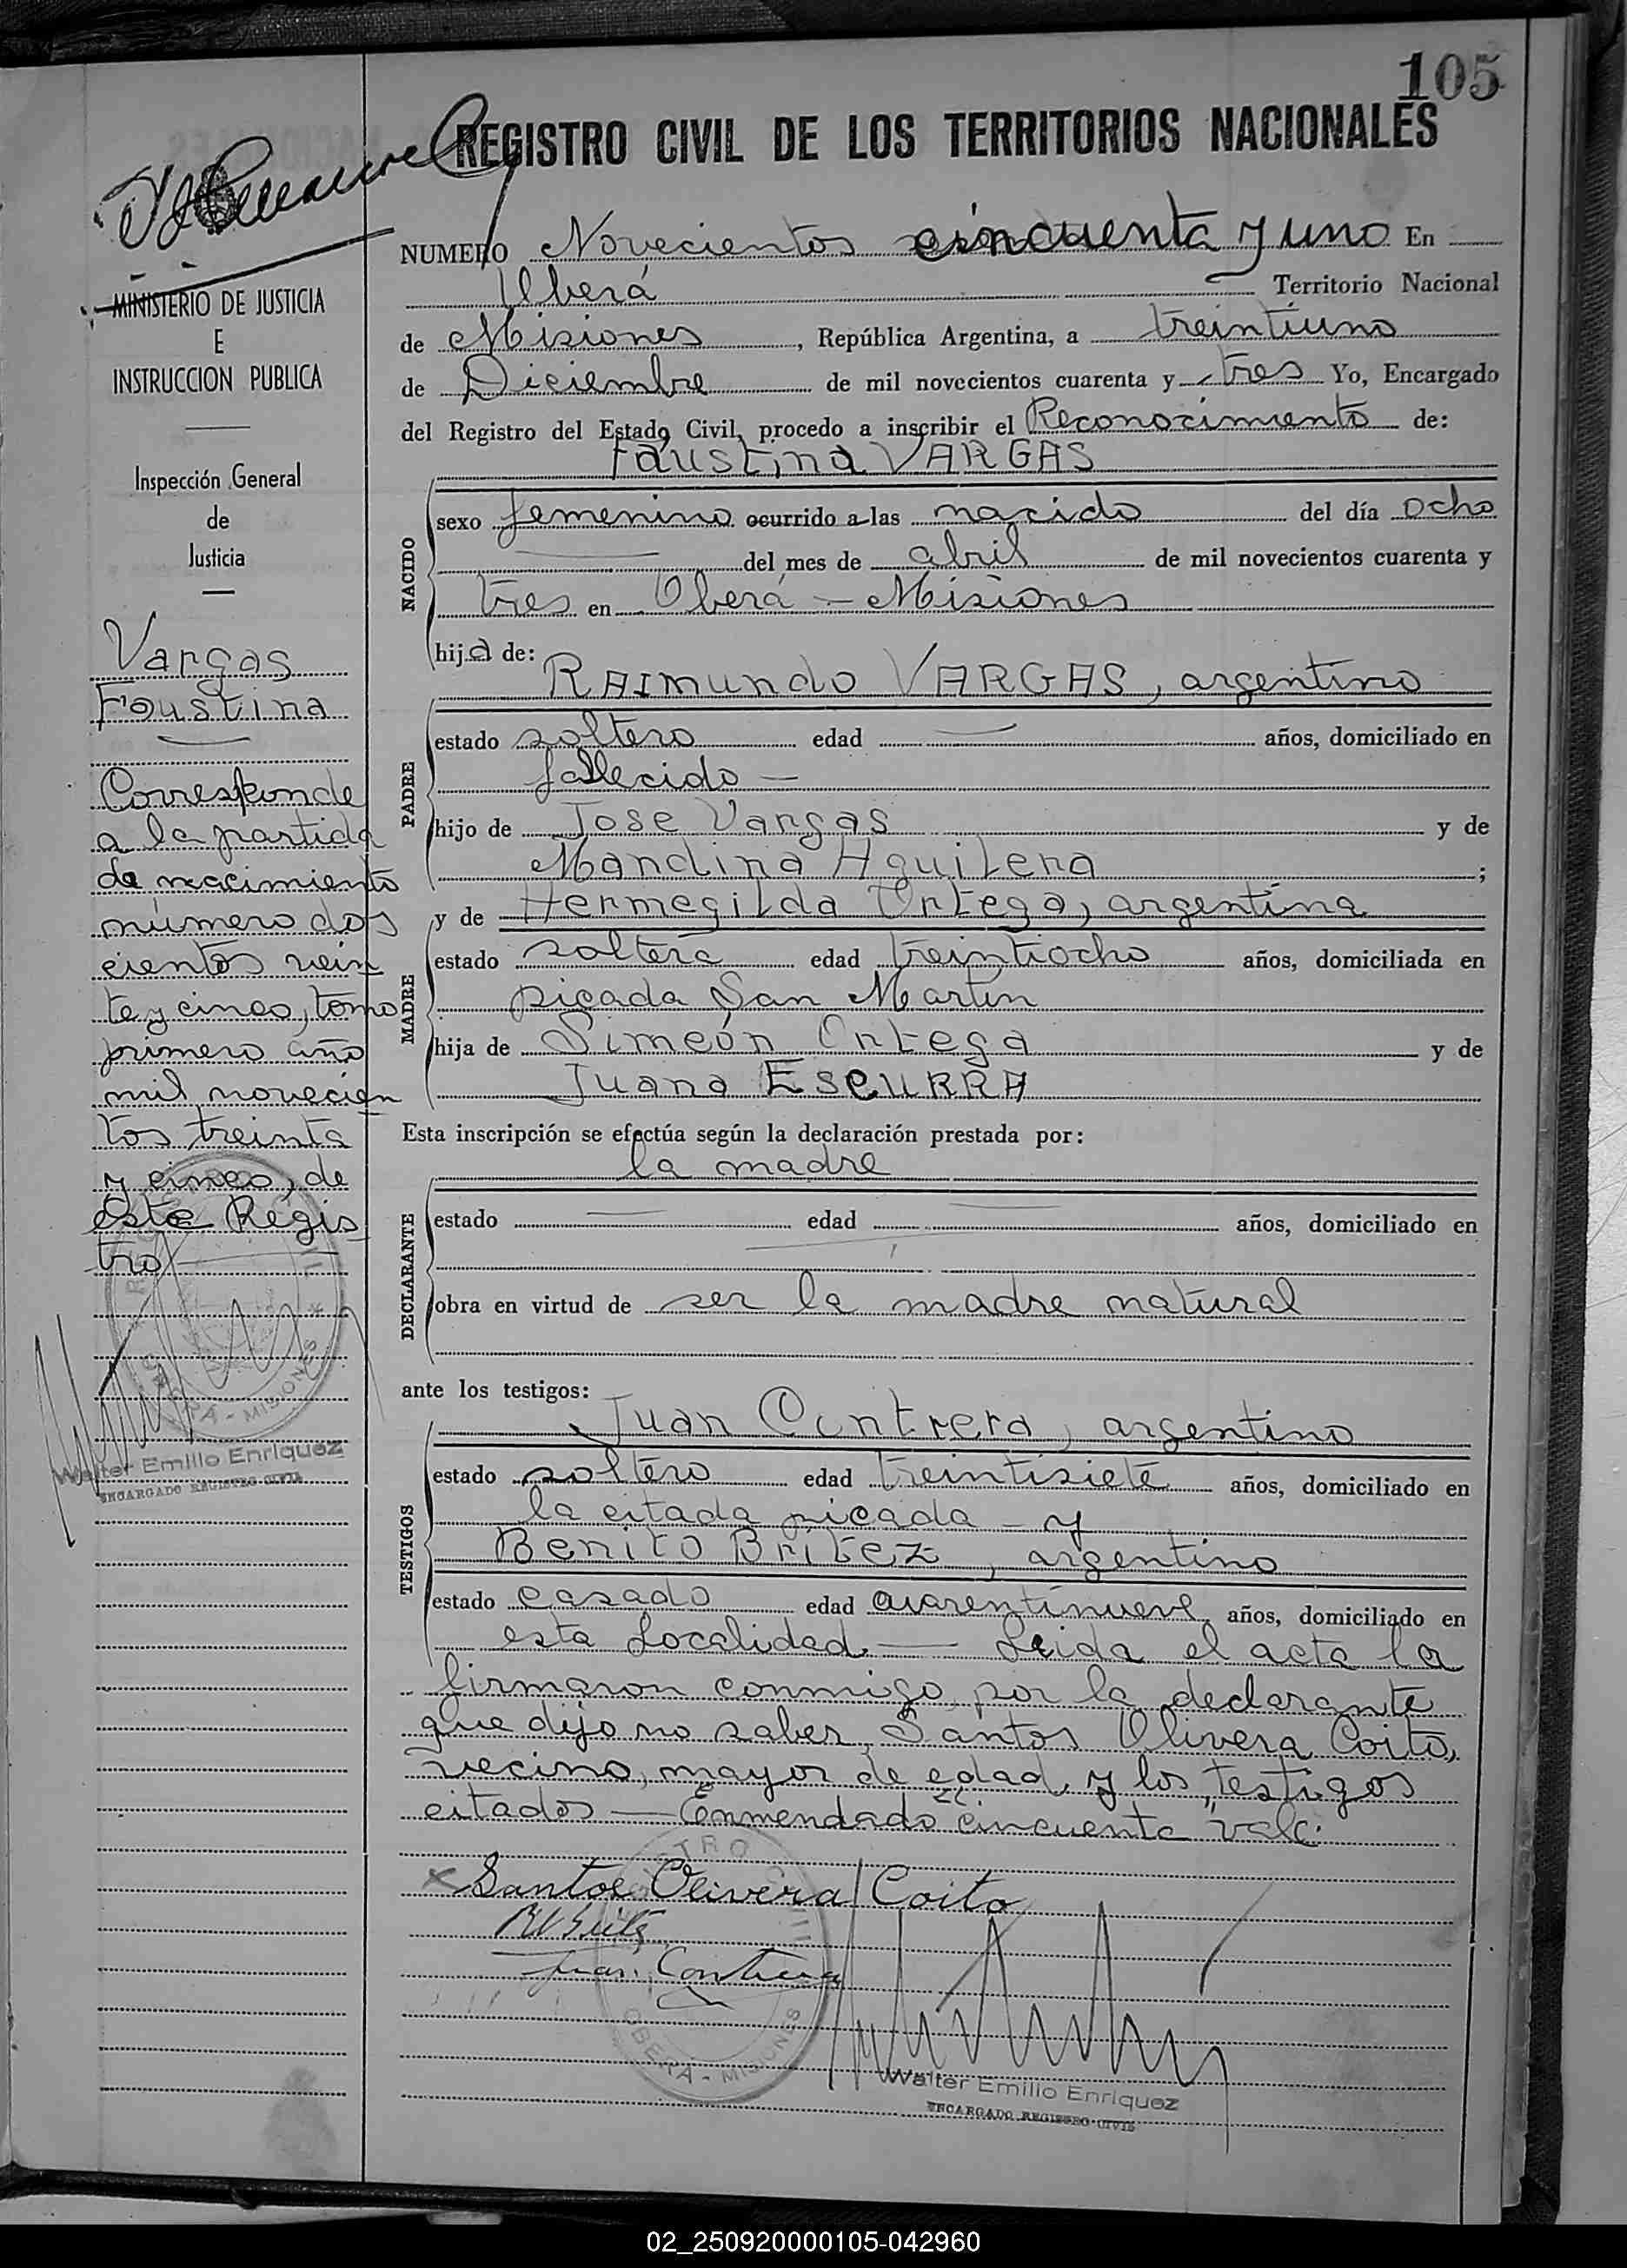 105
REGISTRO CIVIL DE LOS TERRITORIOS NACIONALES
NUMERO Novecientos cincuenta y uno En
Oberá Territorio Nacional
de Misiones, República Argentina, a treintiuno
de Diciembre de mil novecientos cuarenta y tres Yo, Encargado
del Registro del Estado Civil, procedo a inscribir el Reconocimiento de:
Faustina VARGAS
NACIDO
sexo femenino ocurrido a las nacido del día ocho
del mes de abril de mil novecientos cuarenta y
tres en Oberá - Misiones
hija de:
RAIMUNDO VARGAS, argentino
PADRE
estado soltero edad años, domiciliado en
fallecido -
hijo de Jose Vargas y de
Mandina Aguilera ;
y de Hermegilda Ortega, argentina
MADRE
estado soltera edad treintiocho años, domiciliada en
picada San Martin
hija de Simeón Ortega y de
Juana ESCURRA
Esta inscripción se efectúa según la declaración prestada por:
la madre
DECLARANTE
estado edad años, domiciliado en
obra en virtud de ser la madre natural
ante los testigos:
Juan Contrera, argentino
TESTIGOS
estado soltero edad treintisiete años, domiciliado en
la citada picada - y
Benito Britez, argentino
estado casado edad cuarentinueve años, domiciliado en
esta Localidad. — Leida el acta la
firmaron conmigo, por la declarante
que dijo no saber, Santos Olivera Coito,
vecino, mayor de edad, y los testigos
citados — Enmendado cincuenta vale.
Santos Olivera Coito
Juan Contrera
Walter Emilio Enriquez
ENCARGADO REGISTRO CIVIL
OBERA - MISIONES
MINISTERIO DE JUSTICIA
E
INSTRUCCION PUBLICA
Inspección General
de
Justicia
Vargas
Faustina
Corresponde
a la partida
de nacimiento
número dos
cientos vein
te y cinco, tomo
primero año
mil novecien
tos treinta
y cinco, de
este Regis
tro
MISIONES
Walter Emilio Enriquez
ENCARGADO REGISTRO CIVIL
02_250920000105-042960